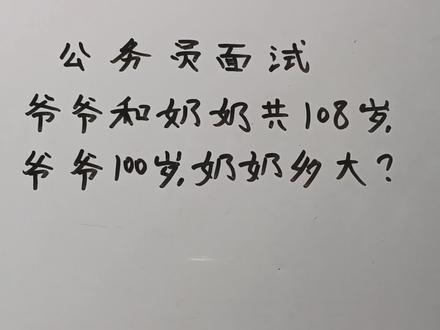 公务员面试
爷爷和奶奶共108岁,
爷爷100岁,奶奶多大?